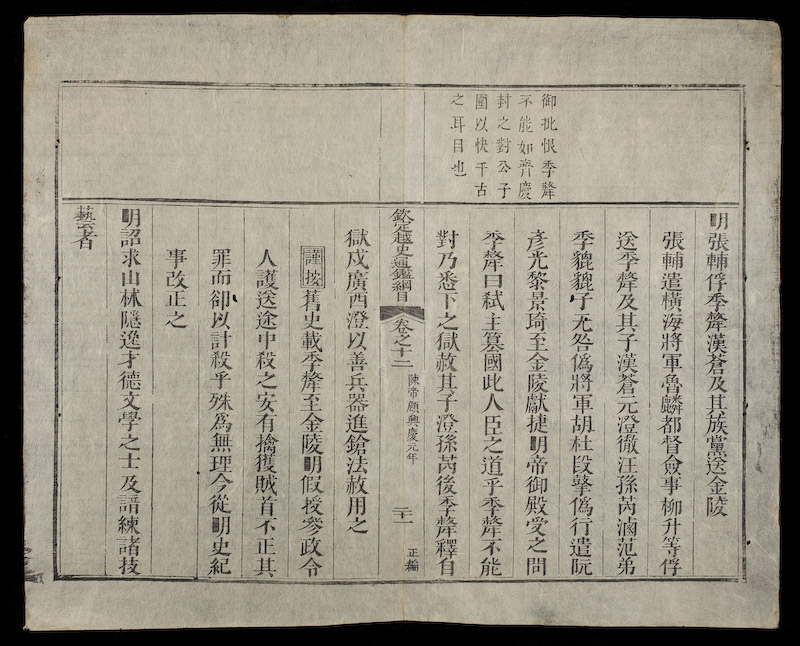 御批恨季犛
不能如齊慶
封之對公子
圍以快千古
之耳目也
明張輔俘季犛漢蒼及其族黨送金陵
張輔遣橫海將軍魯麟都督僉事柳升等俘
送季犛及其子漢蒼元澄徹汪孫芮滷范弟
季貔貔子元咎偽將軍胡杜段擥偽行遣阮
彥光黎景琦至金陵獻捷明帝御殿受之問
季犛曰弒主篡國此人臣之道乎季犛不能
對乃悉下之獄赦其子澄孫芮後季犛釋自
欽定越史通鑑綱目
卷之十二
陳帝頠興慶元年
二十一
正編
獄戍廣西澄以善兵器進鎗法赦用之
謹按舊史載季犛至金陵明假授參政令
人護送途中殺之安有擒獲賊首不正其
罪而卻以計殺乎殊為無理今從明史紀
事改正之
明詔求山林隱逸才德文學之士及諳練諸技
藝者